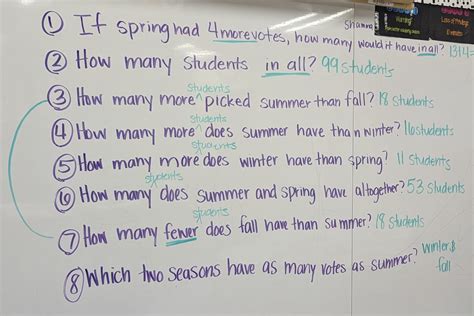 ① If spring had 4 more votes, how many would it have in all? 1314=
② How many students in all? 99 students
③ How many more ^students picked summer than fall? 18 students
④ How many more ^students does summer have than winter? 16 students
⑤ How many more ^students does winter have than spring? 11 students
⑥ How many ^students does summer and spring have altogether? 53 students
⑦ How many fewer ^students does fall have than summer? 18 students
⑧ Which two seasons have as many votes as summer? winter & fall